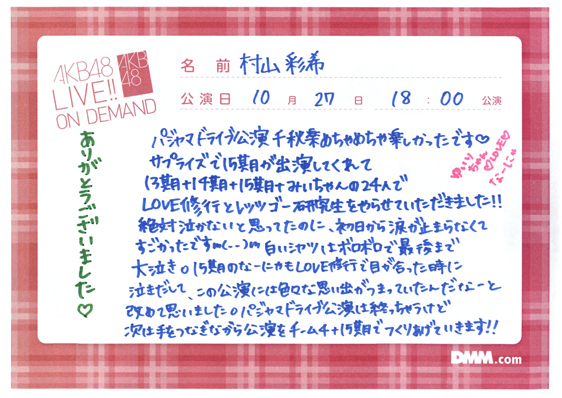 AKB48
LIVE!!
ON DEMAND
AKB
48
名 前 村山彩希
公演日 10 月 27 日 18 : 00 公演
ありがとうございました♡
パジャマドライブ公演千秋楽めちゃめちゃ楽しかったです♡
サプライズで15期が出演してくれて
13期+14期+15期+みいちゃんの24人で
LOVE修行とレッツゴー研究生をやらせていただきました!!
絶対泣かないと思ってたのに、初日から涙が止まらなくて
すごかったですm(--)m 白いシャツはボロボロで最後まで
大泣き。15期のなーにゃもLOVE修行で目が合った時に
泣きだして、この公演には色々な思い出がつまっていたんだなーと
改めて思いました。パジャマドライブ公演は終っちゃうけど
次は手をつなぎながら公演をチーム4+15期でつくりあげていきます!!
ゆいりちゃん
♡LOVE♡
なーにゃ
DMM.com